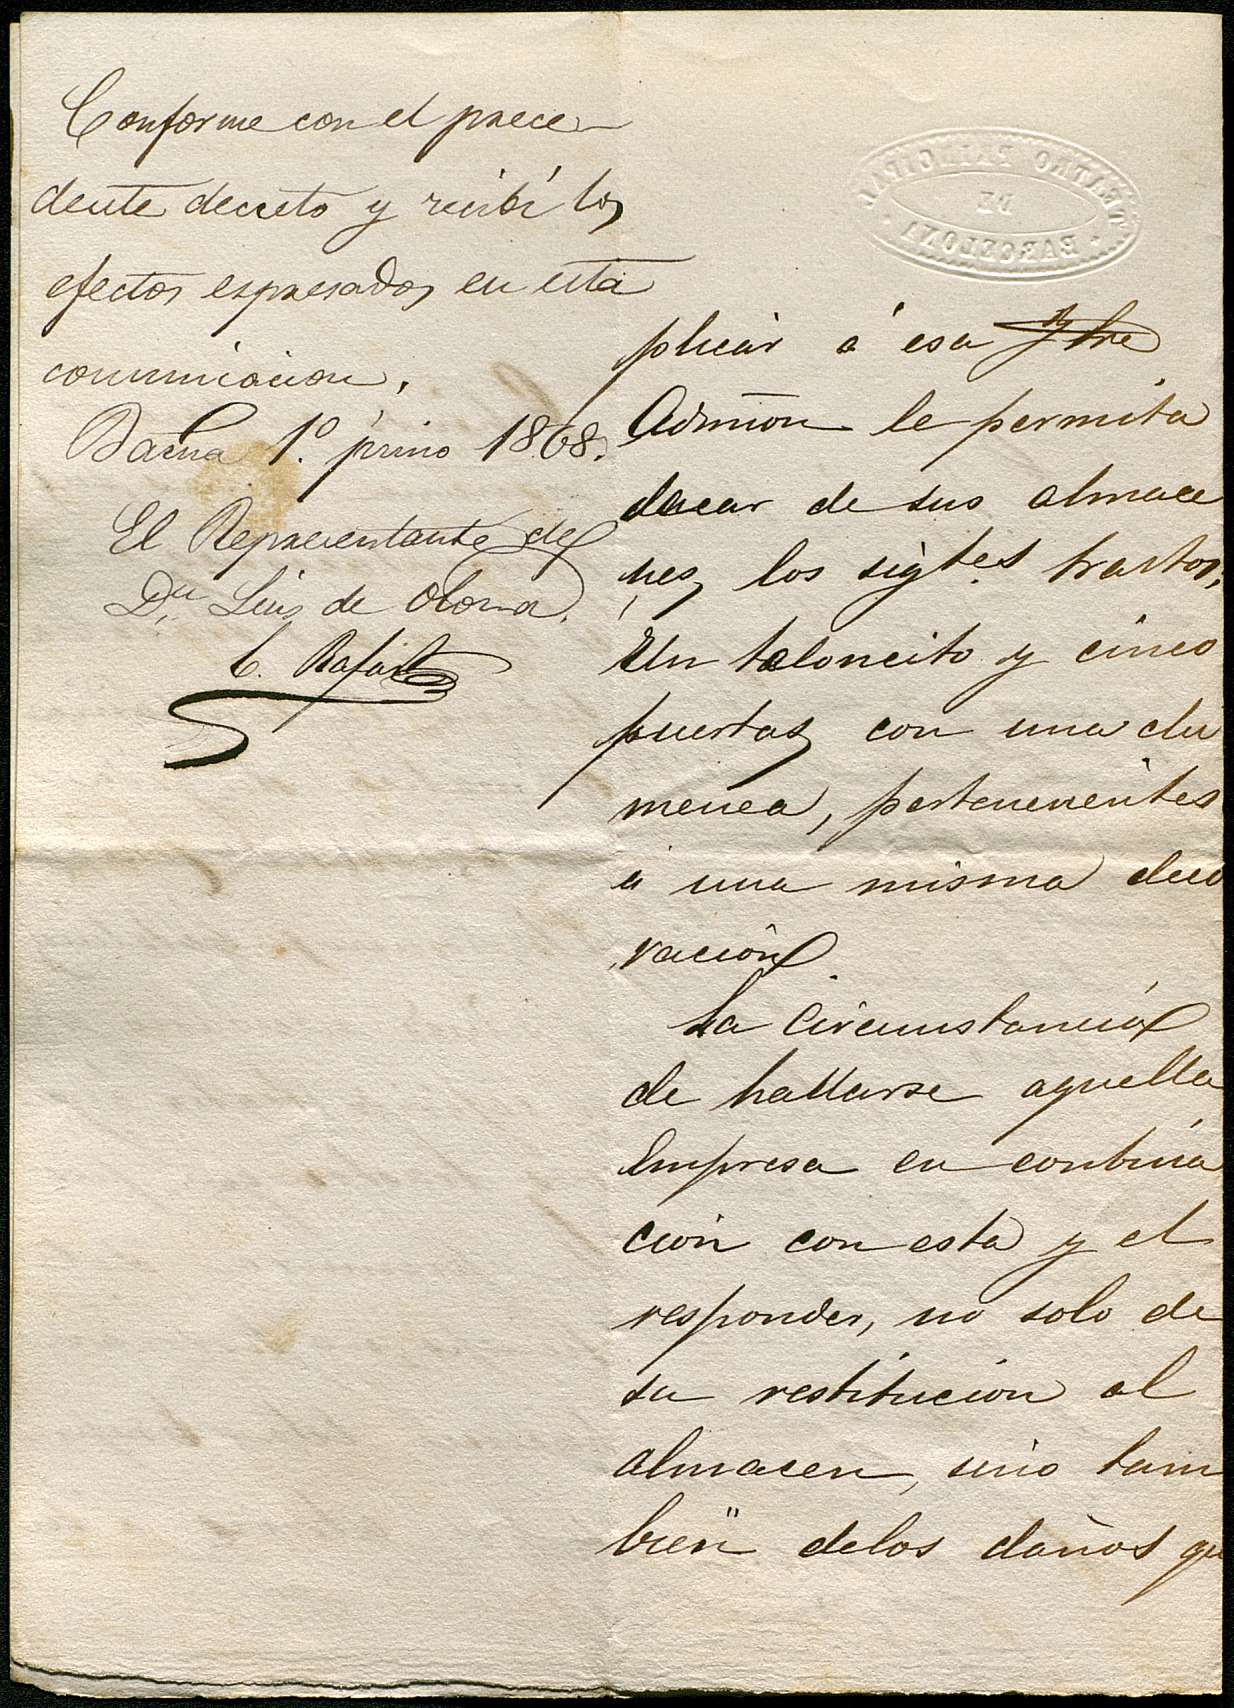 Conforme con el prece-
dente decreto y recibí los
efectos espresados en esta
comunicacion.
Barna 1º. junio 1868.
El Representante de
Dn. Luis de Olona.
C. Rafart
TEATRO PRINCIPAL
DE
BARCELONA
plicar á esa
Admon le permita
sacar de sus almace
nes los sigtes trastos,
Un teloncito y cinco
puertas con una chi
menea, pertenenientes
á una misma deco
ración.
La Circunstancia
de hallarse aquella
Empresa en conbina
ción con esta y el
responder, no solo de
su restitución al
almacen, sino tam
bien de los daños qu